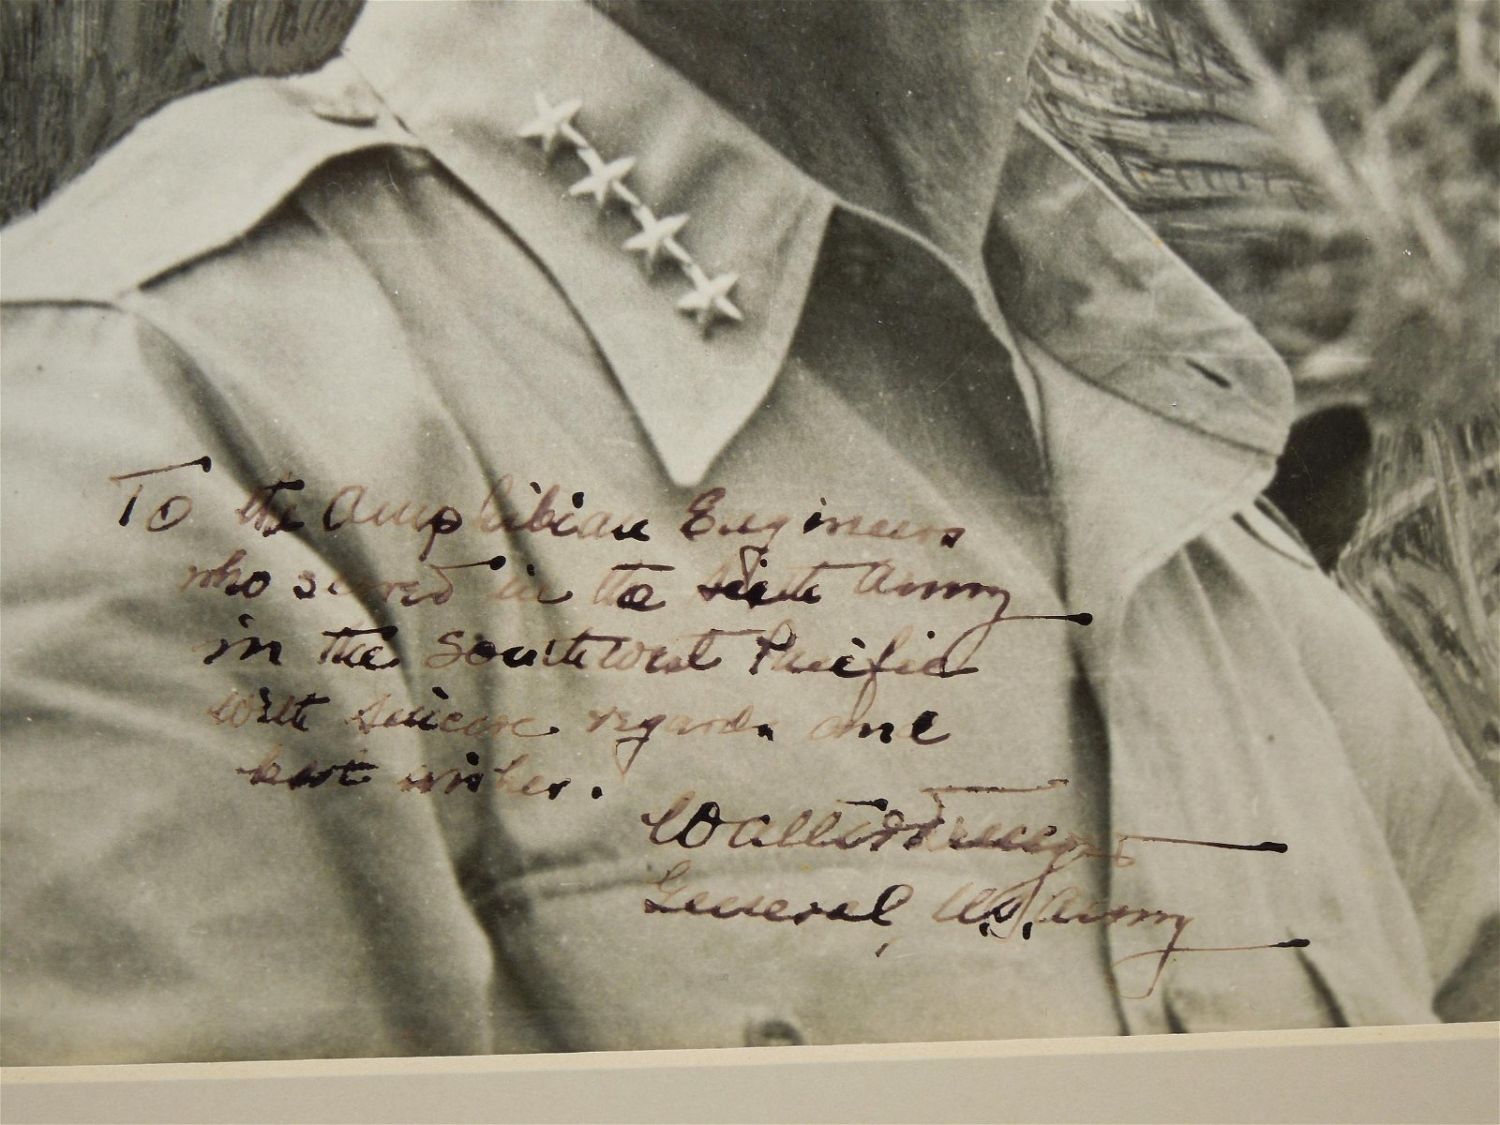 To the Amphibian Engineers
who served in the Sixth Army
in the Southwest Pacific
with sincere regards and
best wishes.
Walter Krueger
General, U.S. Army